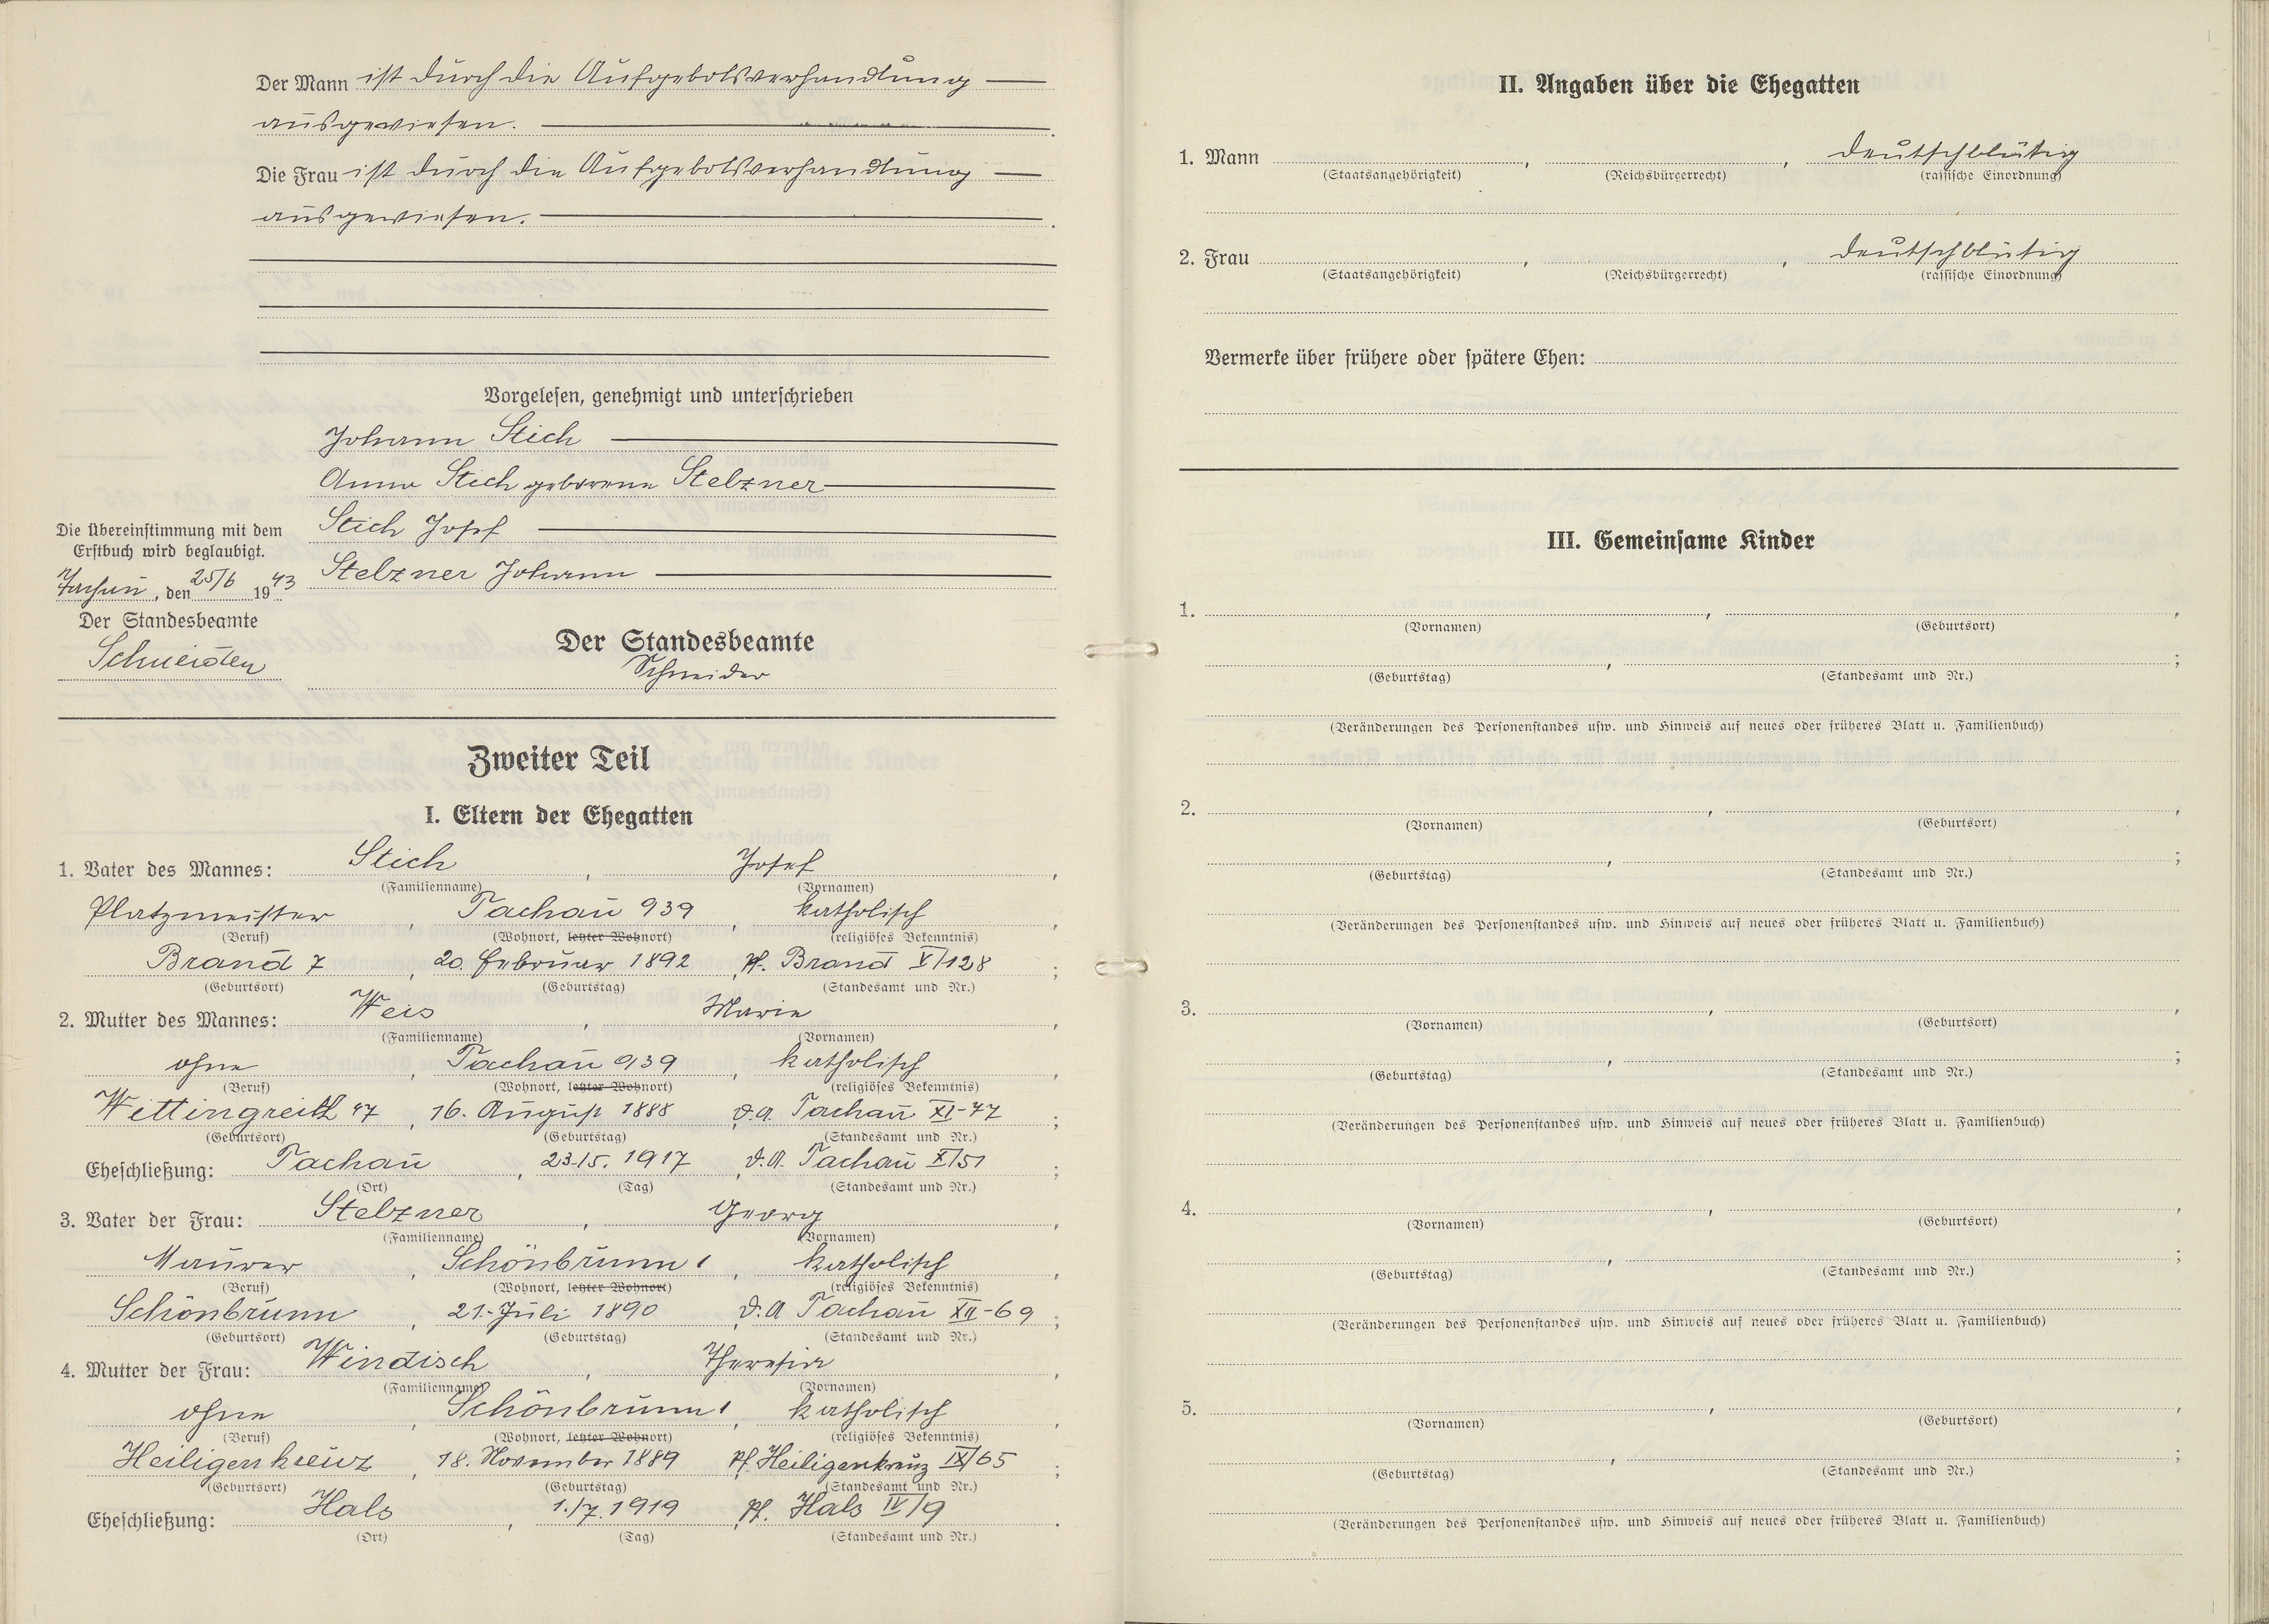 Der Mann ist durch die Aufgebotsverhandlung
ausgewiesen.
Die Frau ist durch die Aufgebotsverhandlung
ausgewiesen.
Vorgelesen, genehmigt und unterschrieben
Johann Stich
Anna Stich geborene Stelzner
Stich Josef
Stelzner Johann
Die Übereinstimmung mit dem
Erstbuch wird beglaubigt.
Tachau, den 25/6 1943
Der Standesbeamte
Schneider
Der Standesbeamte
Schneider
Zweiter Teil
I. Eltern der Ehegatten
1. Vater des Mannes: Stich, Josef,
(Familienname) (Vornamen)
Platzmeister, Tachau 939, katholisch,
(Beruf) (Wohnort, letzter Wohnort) (religiöses Bekenntnis)
Brand 7, 20. Februar 1892, Pf. Brand V/128;
(Geburtsort) (Geburtstag) (Standesamt und Nr.)
2. Mutter des Mannes: Weis, Marie,
(Familienname) (Vornamen)
ohne, Tachau 939, katholisch,
(Beruf) (Wohnort, letzter Wohnort) (religiöses Bekenntnis)
Wittingreith 47, 16. August 1888, D.A. Tachau XI-47;
(Geburtsort) (Geburtstag) (Standesamt und Nr.)
Eheschließung: Tachau, 23./5. 1917, D.A. Tachau X/51;
(Ort) (Tag) (Standesamt und Nr.)
3. Vater der Frau: Stelzner, Georg,
(Familienname) (Vornamen)
Maurer, Schönbrunn 1, katholisch,
(Beruf) (Wohnort, letzter Wohnort) (religiöses Bekenntnis)
Schönbrunn, 21. Juli 1890, D.A Tachau XII-69;
(Geburtsort) (Geburtstag) (Standesamt und Nr.)
4. Mutter der Frau: Windisch, Theresia,
(Familienname) (Vornamen)
ohne, Schönbrunn 1, katholisch,
(Beruf) (Wohnort, letzter Wohnort) (religiöses Bekenntnis)
Heiligenkreuz, 18. November 1889, Pf. Heiligenkreuz IX/65;
(Geburtsort) (Geburtstag) (Standesamt und Nr.)
Eheschließung: Hals, 1./7. 1919, Pf. Hals IV/9.
(Ort) (Tag) (Standesamt und Nr.)
II. Angaben über die Ehegatten
1. Mann , , deutschblütig
(Staatsangehörigkeit) (Reichsbürgerrecht) (rassische Einordnung)
2. Frau , , deutschblütig
(Staatsangehörigkeit) (Reichsbürgerrecht) (rassische Einordnung)
Vermerke über frühere oder spätere Ehen:
III. Gemeinsame Kinder
1. , ,
(Vornamen) (Geburtsort)
, ;
(Geburtstag) (Standesamt und Nr.)
(Veränderungen des Personenstandes usw. und Hinweis auf neues oder früheres Blatt u. Familienbuch)
2. , ,
(Vornamen) (Geburtsort)
, ;
(Geburtstag) (Standesamt und Nr.)
(Veränderungen des Personenstandes usw. und Hinweis auf neues oder früheres Blatt u. Familienbuch)
3. , ,
(Vornamen) (Geburtsort)
, ;
(Geburtstag) (Standesamt und Nr.)
(Veränderungen des Personenstandes usw. und Hinweis auf neues oder früheres Blatt u. Familienbuch)
4. , ,
(Vornamen) (Geburtsort)
, ;
(Geburtstag) (Standesamt und Nr.)
(Veränderungen des Personenstandes usw. und Hinweis auf neues oder früheres Blatt u. Familienbuch)
5. , ,
(Vornamen) (Geburtsort)
, ;
(Geburtstag) (Standesamt und Nr.)
(Veränderungen des Personenstandes usw. und Hinweis auf neues oder früheres Blatt u. Familienbuch)